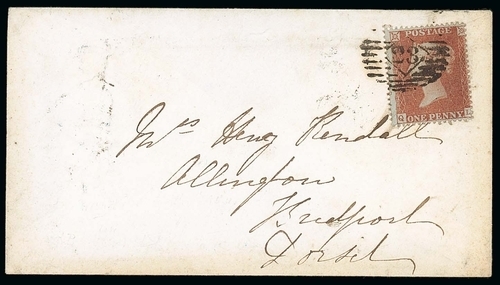 POSTAGE
23
ONE PENNY
Mrs Henry Kendall
Allington
Bridport
Dorset